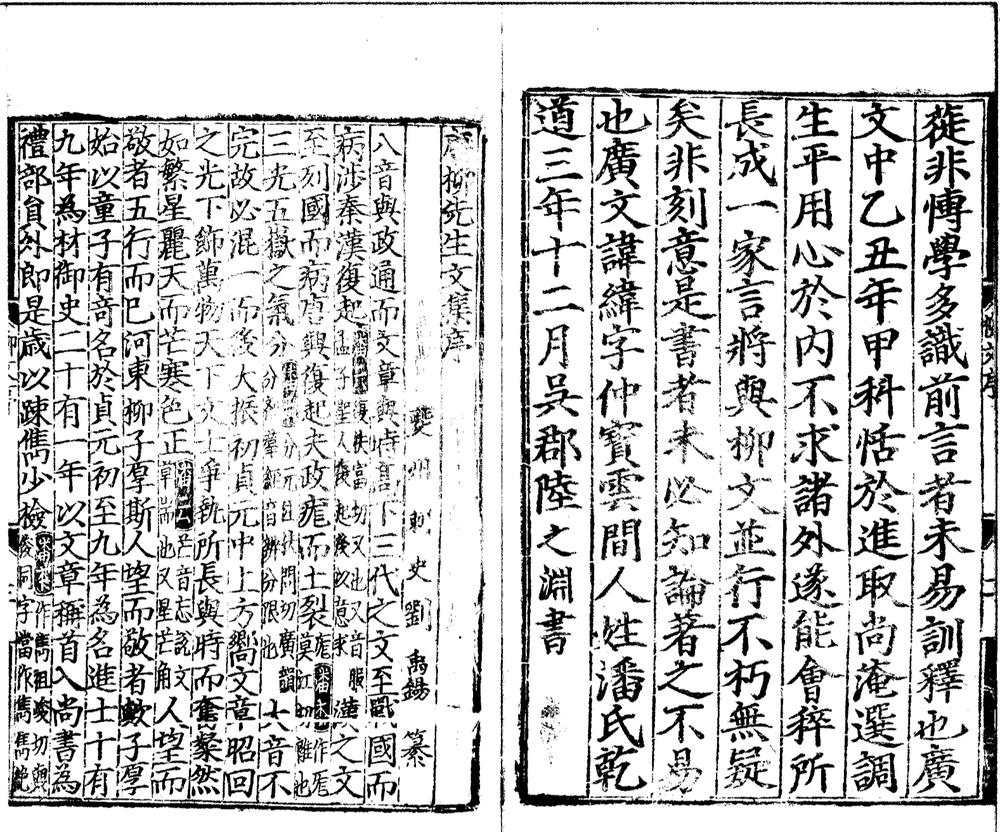 蓰非博學多識前言者未易訓釋也廣
文中乙丑年甲科恬於進取尚淹選調
生平用心於內不求諸外遂能會稡所
長成一家言將與柳文並行不朽無疑
矣非刻意是書者未必知論著之不易
也廣文諱緯字仲寶雲間人姓潘氏乾
道三年十二月吳郡陸之淵書
柳先生文集序
夔州刺史劉禹錫纂
八音與政通而文章與時高下三代之文至戰國而
病涉秦漢復起漢之文
至列國而病唐興復起夫政痝而土裂
三光五嶽之氣分大音不
完故必混一而後大振初貞元中上方嚮文章昭回
之光下飾萬物天下文士爭執所長與時而奮粲然
如繁星麗天而芒寒色正人望而
敬者五行而已河東柳子厚斯人望而敬者歟子厚
始以童子有奇名於貞元初至九年為名進士十有
九年為材御史二十有一年以文章稱首入尚書為
禮部員外郎是歲以疎雋少檢